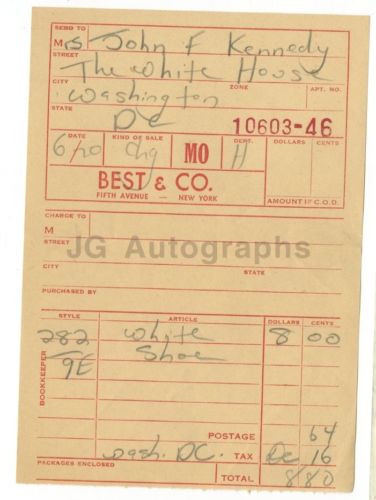 SEND TO
Mrs John F Kennedy
STREET
The White House
CITY ZONE APT. NO.
Washington
STATE
DC
10603-46
DATE KIND OF SALE DEPT. DOLLARS CENTS
6/20 Chg MO H
BEST & CO.
FIFTH AVENUE — NEW YORK
AMOUNT IF C.O.D.
CHARGE TO
M
STREET
JG Autographs
CITY STATE
PURCHASED BY
STYLE ARTICLE DOLLARS CENTS
282 White 8 00
9E Shoe
BOOKKEEPER
POSTAGE 64
Wash. DC. TAX DC 16
PACKAGES ENCLOSED
TOTAL 8/80